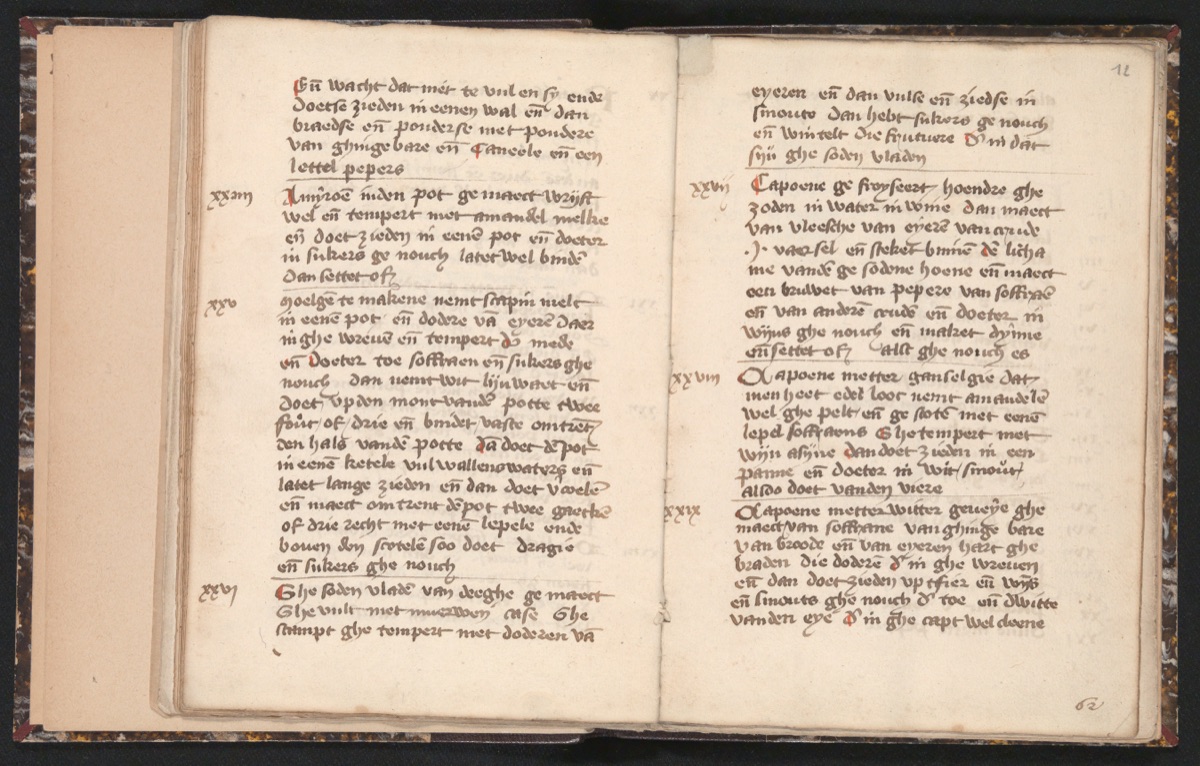 Eñ wacht dat niet te vul en sy ende
doetse zieden in eenen wal eñ dan
braedse eñ pouderse met poudere
van ghingebare eñ Caneele eñ een
lettel pepers
xxiiii
inden pot ge maect wrijft
wel eñ tempert met amandel melke
eñ doet zieden in eenē pot eñ doeter
in sukers ge nouch latet wel bindē
dan settet of
xxv
te makene nemt scapin melc
in eenē pot eñ dodere vā eyerē daer
in ghe wreuē eñ tempert mede
eñ Doeter toe soffraen eñ sukers ghe
nouch dan nemt wit lijnwaet eñ
doet vp den mont vandē potte twee
fout of drie eñ bindet vaste omtrēt
den hals vandē potte dā doet dē pot
in eenē ketele vul wallens waters eñ
latet lange zieden eñ dan doet
eñ maect omtrent dē pot twee
of drie recht met eenē lepele ende
bouen den scotelē soo doet dragie
eñ sukers ghe nouch
xxvj
Ghe soden vladē van deeghe ge maect
Ghe vult met case Ghe
stampt ghe tempert met doderen vā
12
eyeren eñ dan vulse eñ ziedse in
smoute dan hebt sukers ge nouch
eñ wintelt die frutuere in dat
sijn ghe soden vladen
xxvij
Capoene ge froyseert hoendre ghe
zoden in water in wine dan maect
van vleesche van eyerē van crude
vaersel eñ steket binnē dē licha
me vandē ge sodene hoene eñ maect
een bruwet van pepere van soffraē
eñ van anderē crudē eñ doeter in
wijns ghe nouch eñ maket dynne
eñ settet of alst ghe nouch es
xxviii
Capoene metter ganselgie dat
men heet edel loot nemt amandelē
wel ghe pelt eñ ge stotē met eenē
lepel soffraens Ghe tempert met
wijn asijne dan doet zieden in een
panne eñ doeter in wit smout
also doet vanden viere
xxix
Capoene metter witter geueye ghe
maect van soffrane van ghinge bare
van broode eñ van eyeren hart ghe
braden die doderē in ghe wreuen
eñ dan doet zieden vp tfier eñ wijs
eñ smouts ghe nouch toe eñ dwitte
vanden eye in ghe capt wel cleene
62